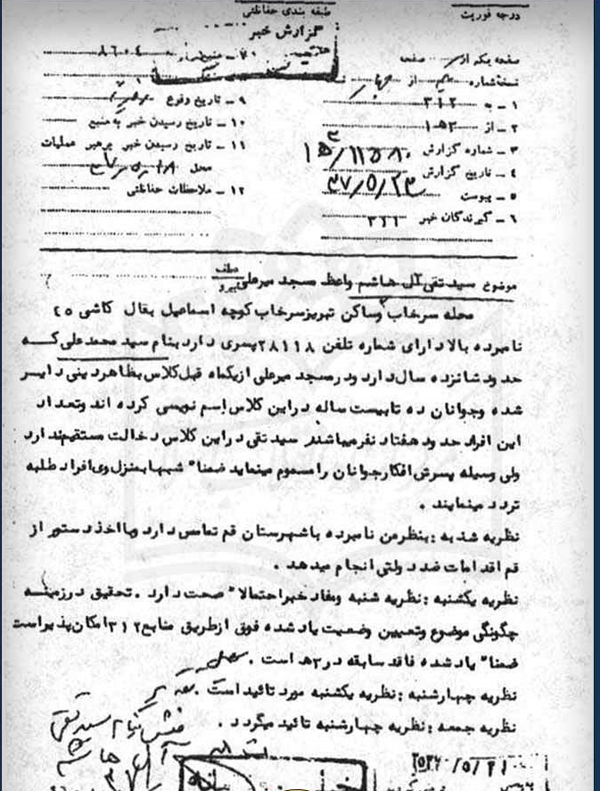 درجه فوریت
طبقه بندی حفاظتی
گزارش خبر
صفحه یکم از صفحه
نسخه شماره از
۱ – به ۳۱۲
۲ – از ۱ﻫ۳
۳ – شماره گزارش ۱۵/۱۱۵۸۰
۴ – تاریخ گزارش ۳۷/۵/۲۳
۵ – پیوست
۶ – گیرندگان خبر ۳۲۱
۷ – منبع ۸۶۰۴
۹ – تاریخ وقوع
۱۰ – تاریخ رسیدن خبر به منبع
۱۱ – تاریخ رسیدن خبر برهبر عملیات
محل ۳۷/۵/۱۸
۱۲ – ملاحظات حفاظتی
موضوع سید تقی آل هاشم واعظ مسجد میرعلی عطف پیرو
محله سرخاب وساکن تبریز سرخاب کوچه اسماعیل بقال کاشی ۲۵
نامبرده بالا دارای شماره تلفن ۲۸۱۱۸ پسری دارد بنام سید محمدعلی که
حدود شانزده سال دارد و در مسجد میرعلی از یکماه قبل کلاس بظاهر دینی دایر
شده وجوانان ده تا بیست ساله در این کلاس اسم نویسی کرده اند وتعداد
این افراد حدود هفتاد نفر میباشد سید تقی در این کلاس دخالت مستقیم ندارد
ولی وسیله پسرش افکار جوانان را مسموم مینماید ضمنا" شبها بمنزل وی افراد طلبه
تردد مینمایند .
نظریه شنبه : بنظر من نامبرده با شهرستان قم تماس دارد وبا اخذ دستور از
قم اقدامات ضد دولتی انجام میدهد .
نظریه یکشنبه : نظریه شنبه ومفاد خبر احتمالا" صحت دارد . تحقیق در زمینه
چگونگی موضوع وتعیین وضعیت یاد شده فوق از طریق منابع ۳۱۲ امکان پذیر است
ضمنا" یاد شده فاقد سابقه در ۳ﻫ است .
نظریه چهارشنبه : نظریه یکشنبه مورد تائید است .
نظریه جمعه : نظریه چهارشنبه تائید میگردد .
سید تقی
آل هاشم